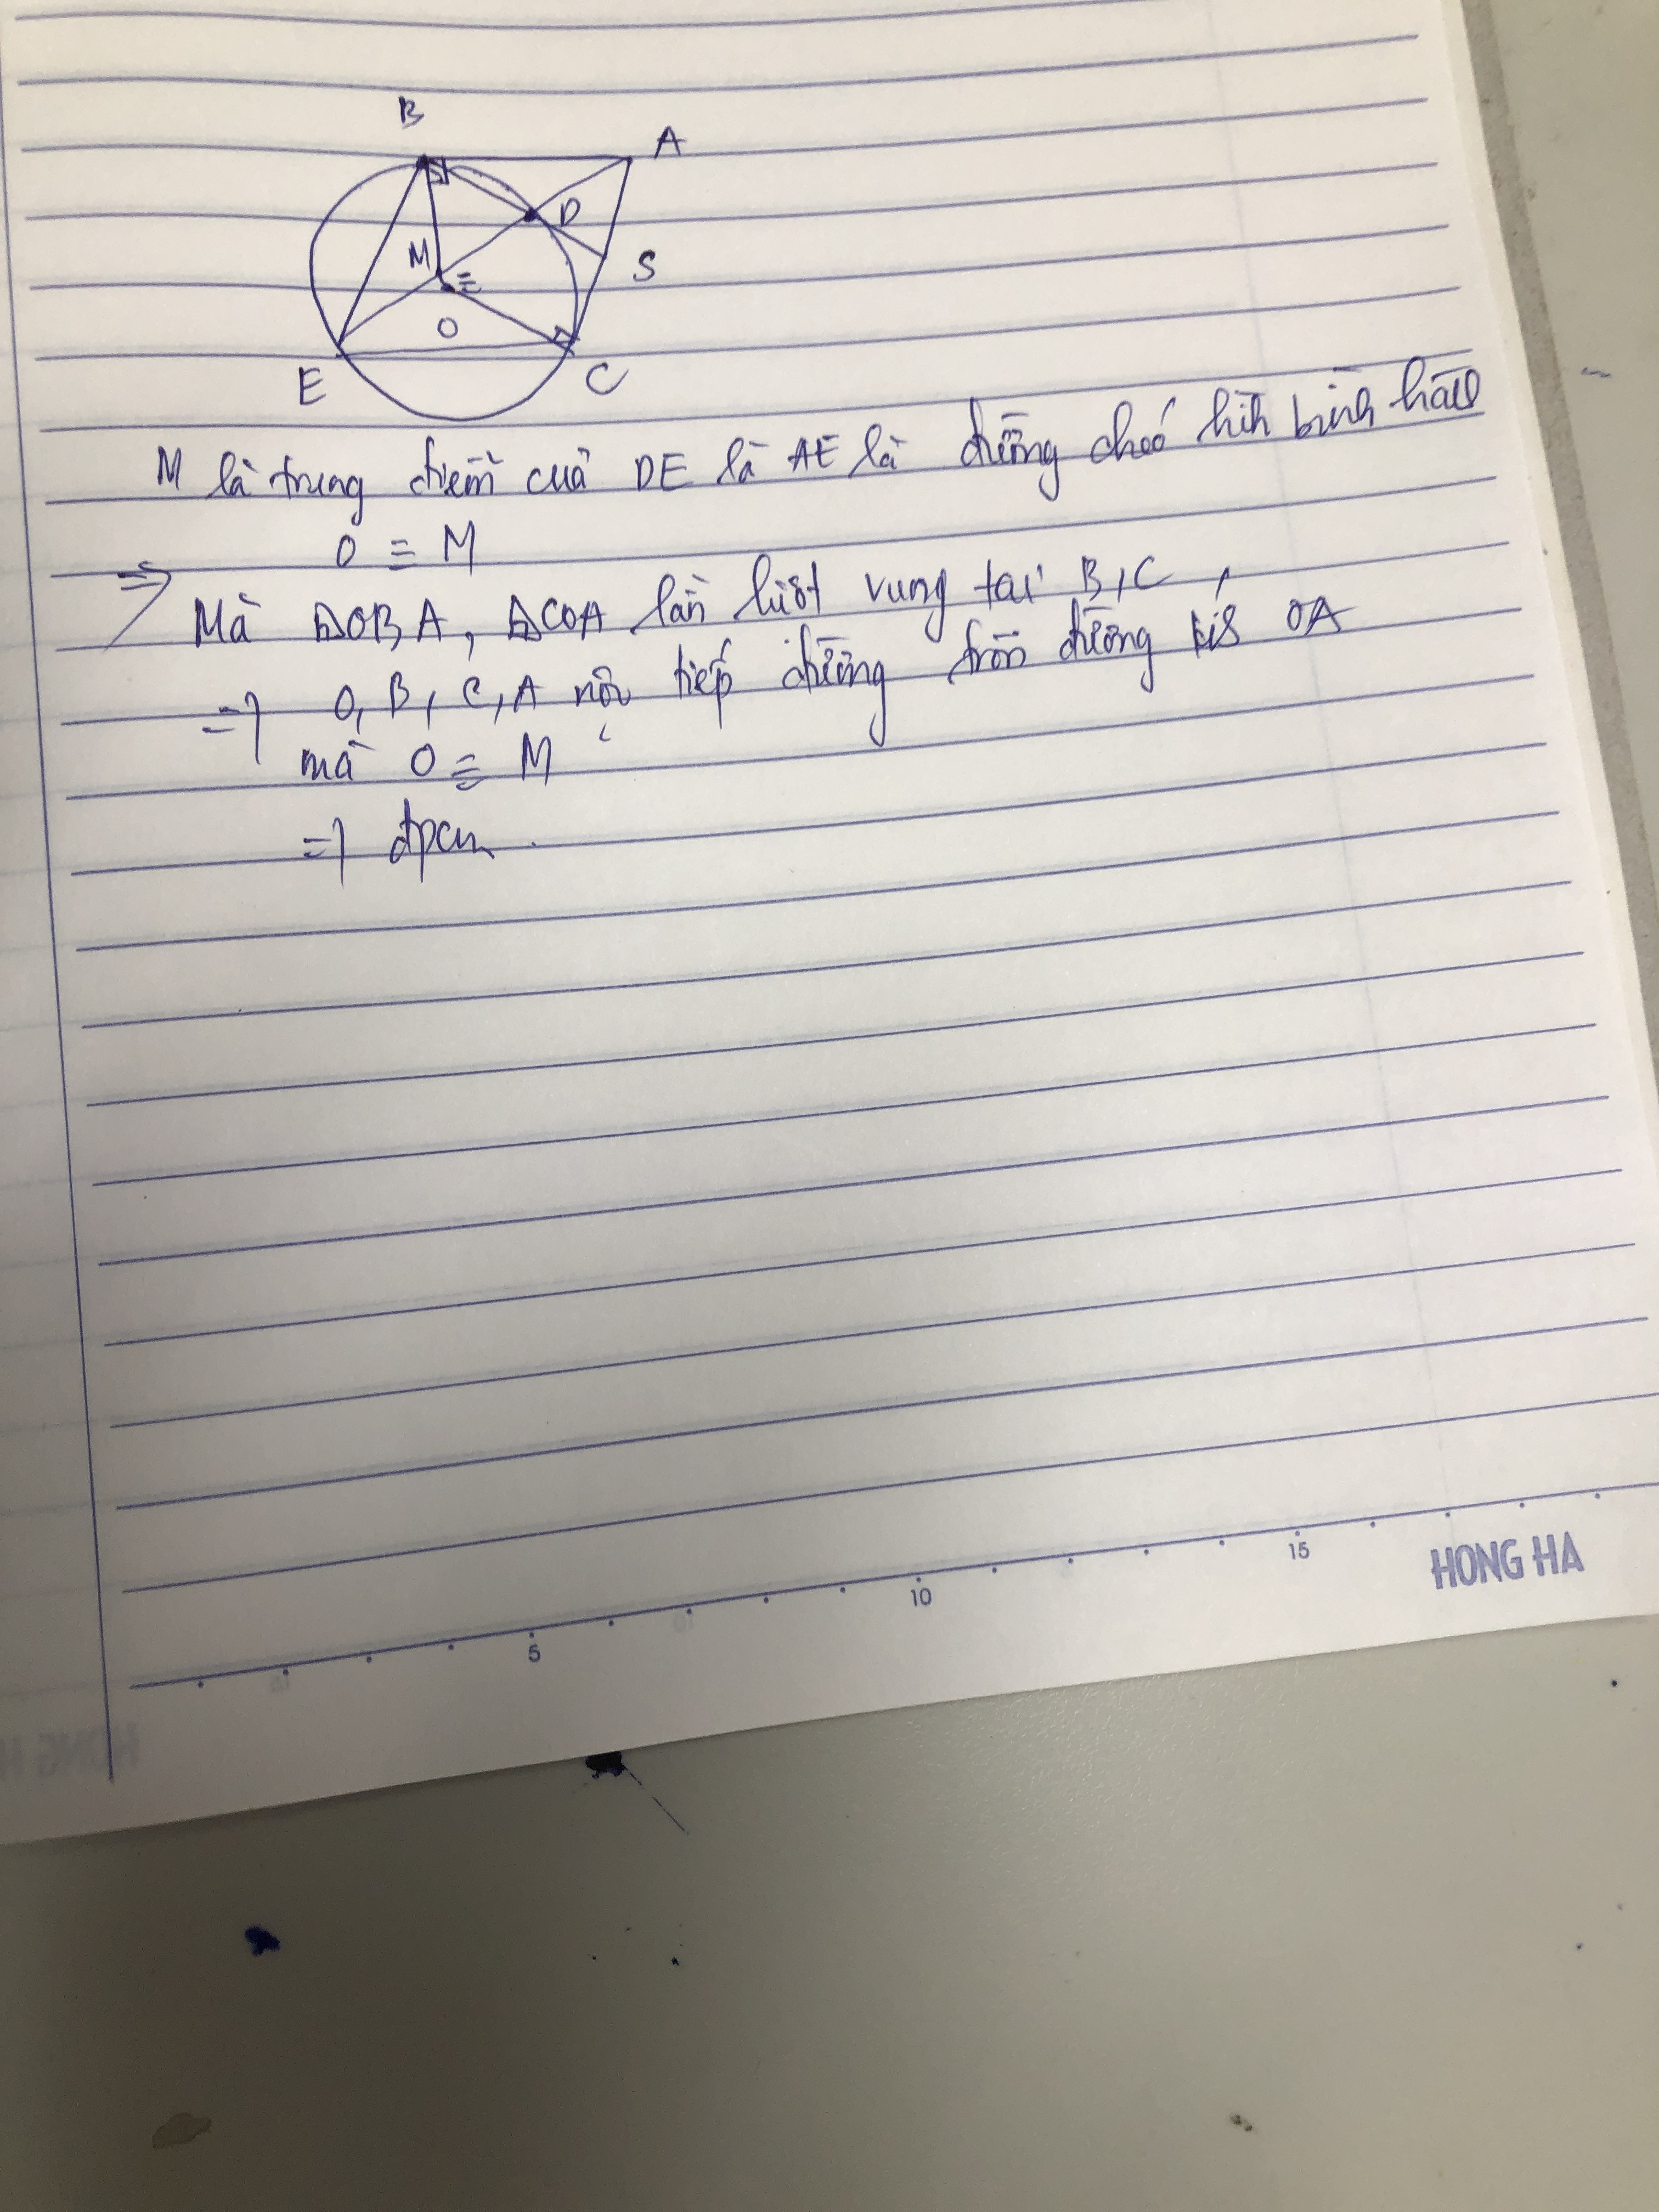 B
A
D
M
S
≡
O
E
C
M là trung điểm của DE là AE là đường chéo hình bình hàn
O ≡ M
=> Mà ΔOBA, ΔCOA lần lượt vung tại B, C,
=> O, B, C, A nội tiếp đường tròn đường kís OA
mà O ≡ M
=> đpcm.
5
10
15
HONG HA